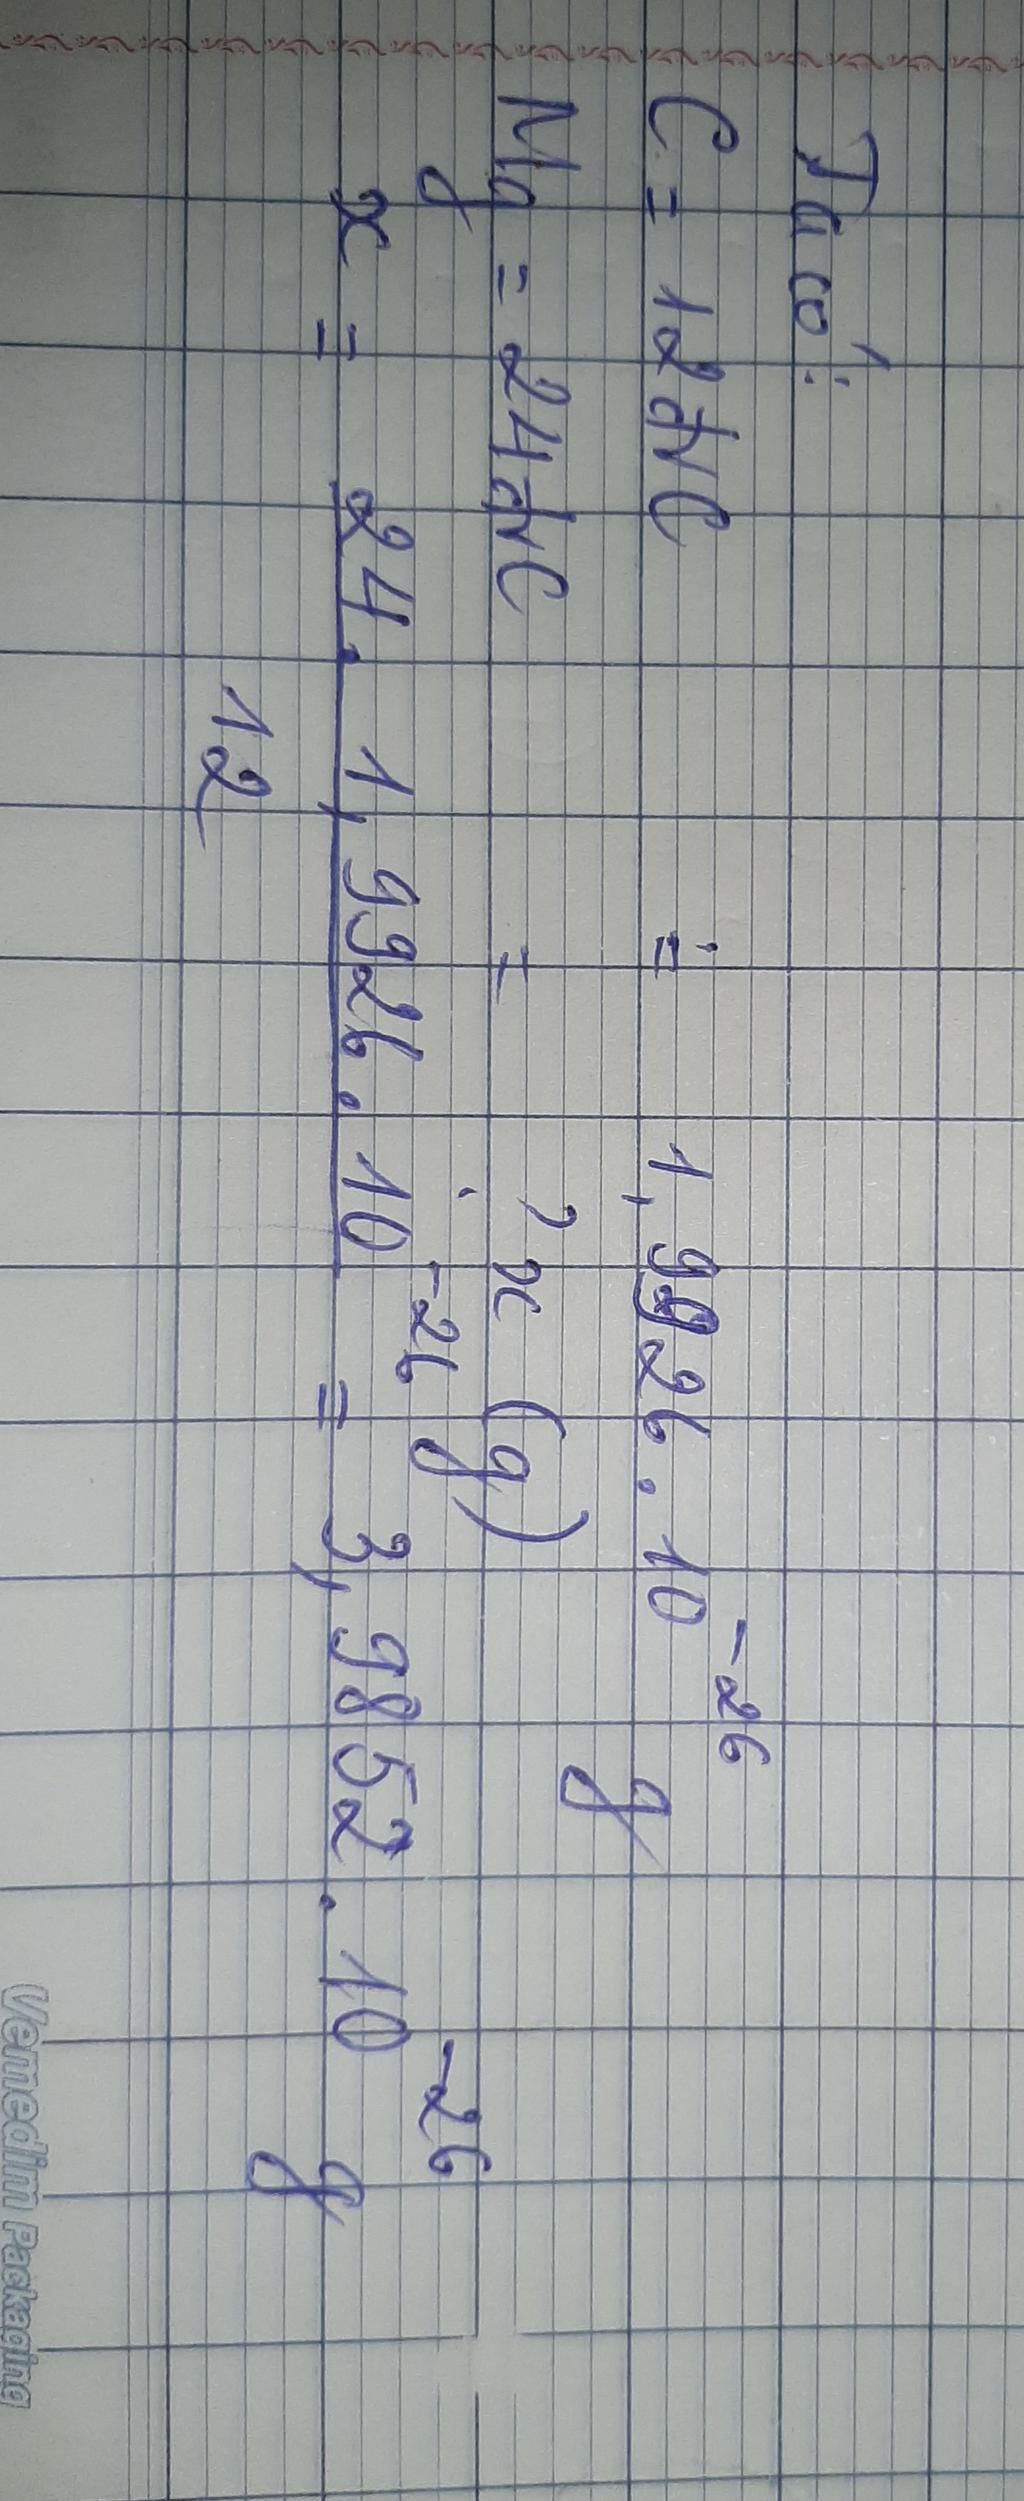 Ta có:
C = 12đvC = 1,9926.10⁻²⁶ g
Mg = 24đvC = ? x (g)
x = 24. 1,9926.10⁻²⁶ / 12 = 3,9852.10⁻²⁶ g
Vemedim Packaging